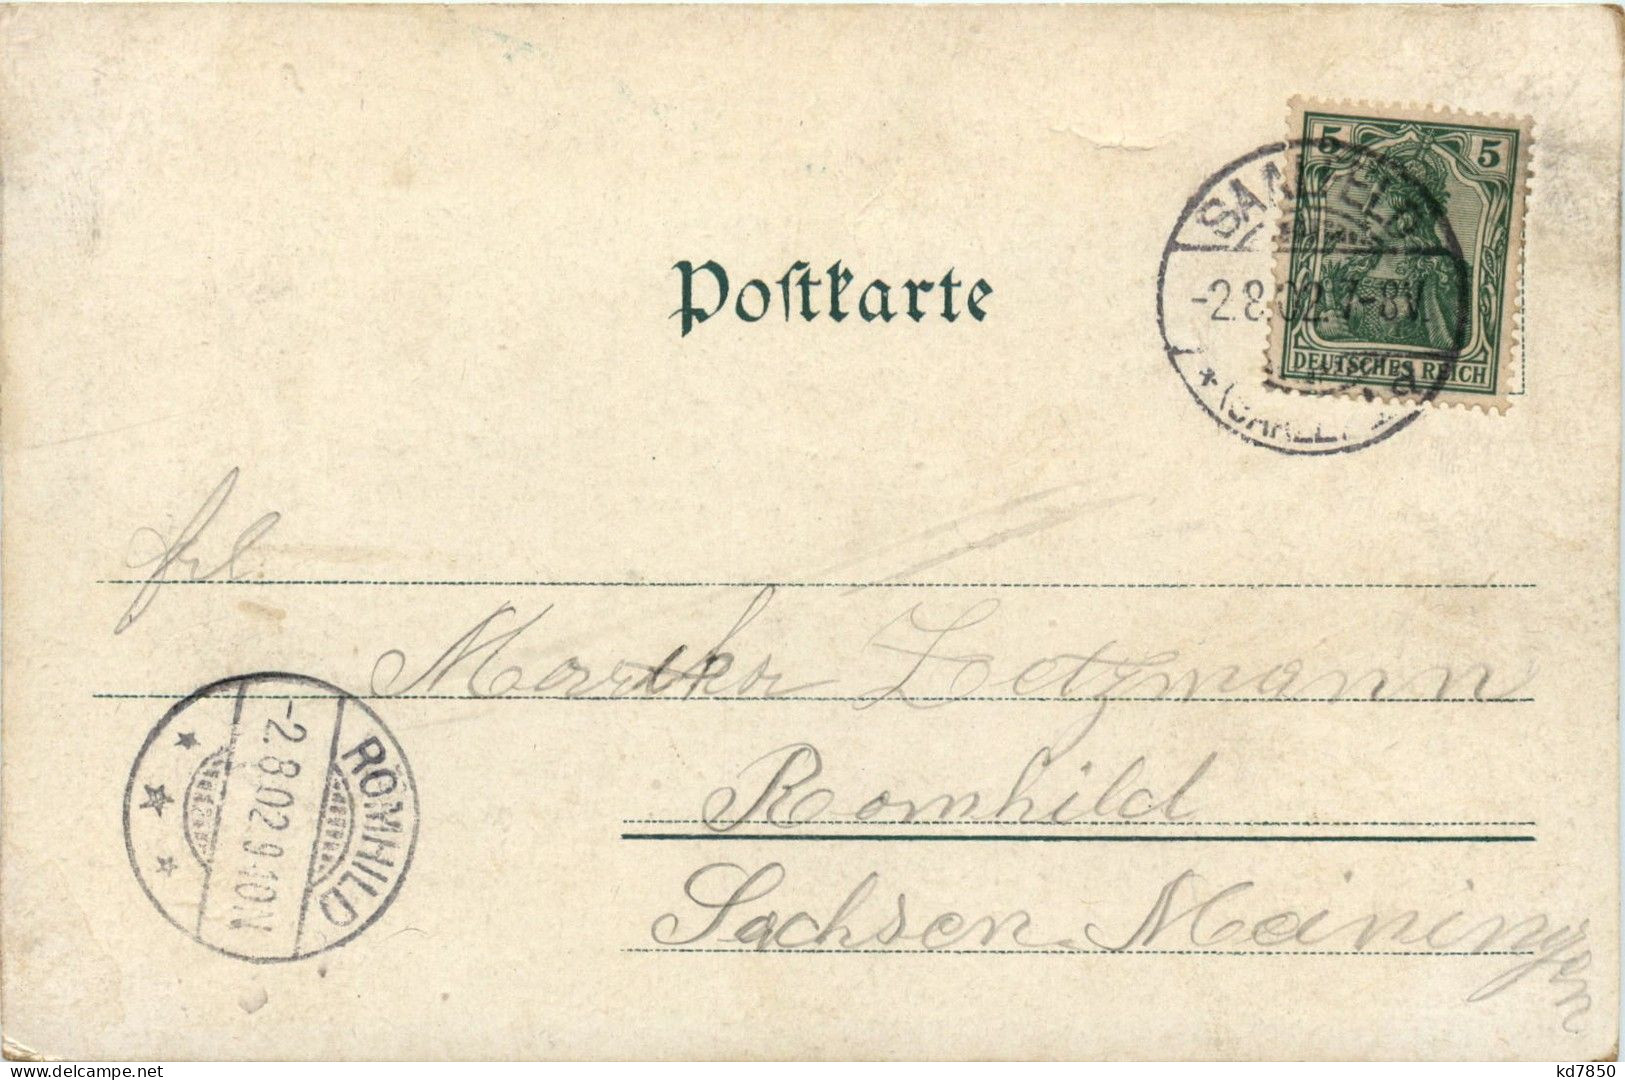 5 5
DEUTSCHES REICH
SAALFELD
-2.8.02.7-8V.
* (SAALE) * a
Postkarte
frl
Martha Zetzmann
RÖMHILD
-2.8.02.9-10N
Romhild
Sachsen-Meiningen
delcampe.net
kd7850